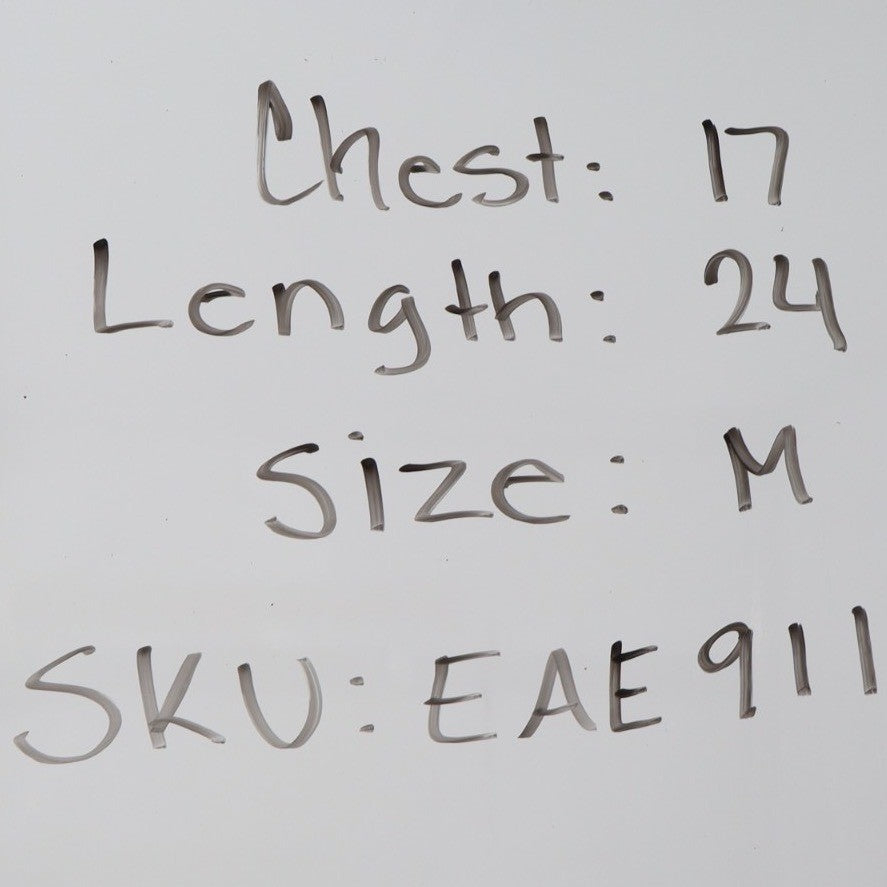 Chest: 17
Length: 24
Size: M
SKU: EAE911